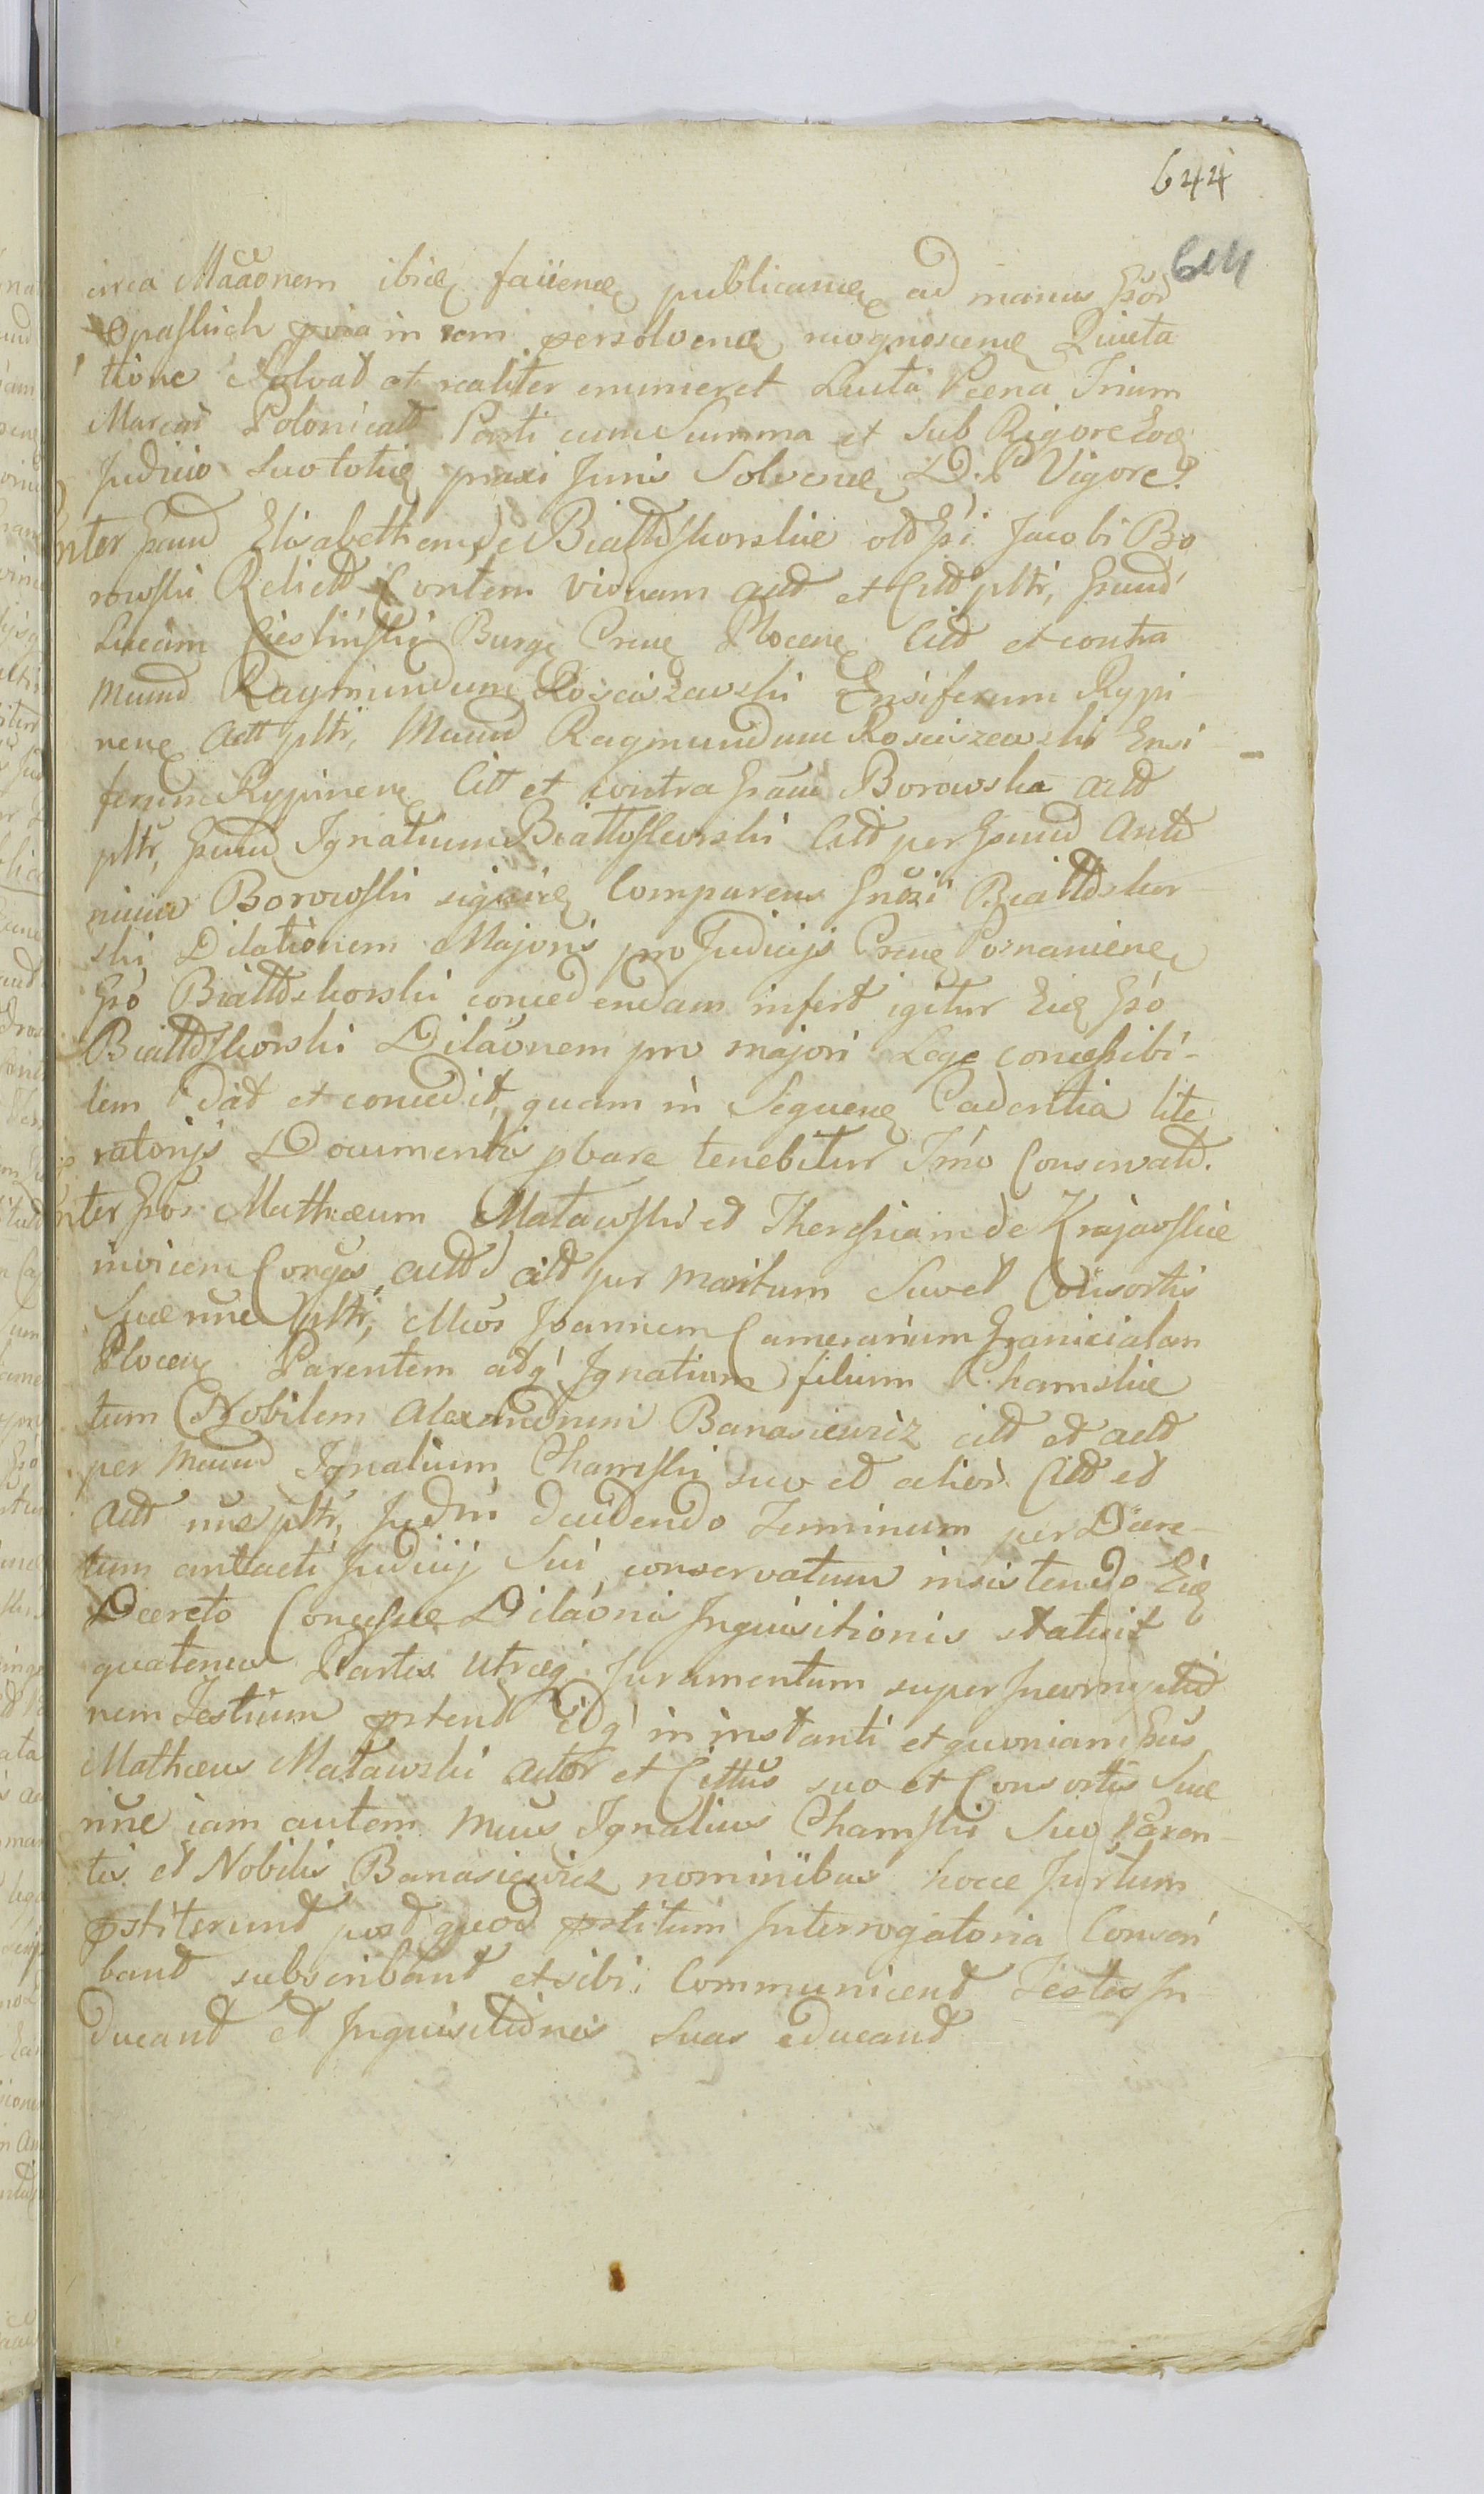 644
644
circa Mãaõnem ibidę faciend publicamę ad manus Gsõr
Opaskich in rem persolvend recognoscend Quieta
tione Solvat et realiter enumeret Luita Pœna Trium
Marcar Polonicalt Parti cum Summa et Sub Rigore Eodę
Judicio Suo totię praxi Juris Solvend D. P Vigore.
Inter Gsam Elisabetham de Białłoskorskie olt Gsi Jacobi Bo
rowski Relict Contem viduam act et Citt pltr, Gsum
Lucam Ciesliński Burgę Crene Plocene Citt et contra
Mcum Raymundum Rosciszewski Ensiferum Rypi
nene Act pltr, Mcum Raymundum Rosciszewski Ensi
ferum Rypinene Citt et contra Gsam Borowska Actt
pltr, Gsum Ignatium Białłoskorski Citt per Gsum Anto
nium Borowski Comparens Gnosi Białłoskor
ski Dilationem Majoris pro Judicijs Crene Posnaniene
Gso Białłoskorski concedendam infert igitur Eię Gso
Białłoskorski Dilaõnem pro majori Lege concessibi-
lem dat et concedit, quam in Sequene Cadentia lite
ratorijs Documentis pbare tenebitur Tmo Conservatt.
Inter Gsos Mathæum Matawski et Theresiam de Krajewskie
invicem Conges actt citt per Maritum Suo et Consortis
Suæ nne pltr, Mcos Joannem Camerarium Granicialem
Plocen Parentem adq Ignatium filium Chamskie
tum Nobilem Alexandrum Banasiewicz citt et actt
per Mcum Ignatium Chamski suo et alior Citt et
Actt nne pltr, Judm decidendo Terminum per Decre-
tum anteacti Judicij Sui conservatum insistendo Eię
Decreto Concessæ Dilaõnis Inquisitionis statuit
quatenus Partes utræq Juramentum super
nem Testium pstent idq in instanti et quoniam Gsus
Mathæus Matawski Actor et Cittus suo et Consortis Suæ
nne iam autem Mcus Ignatius Chamski Suo Paren-
tis et Nobilis Banasiewicz nominibus hocce Jurtum
pstiterunt post quod pstitum Interrogatoria Conscri
bant subscribant et sibi Communicent Testes In-
ducant et Inquisitiones Suas educant